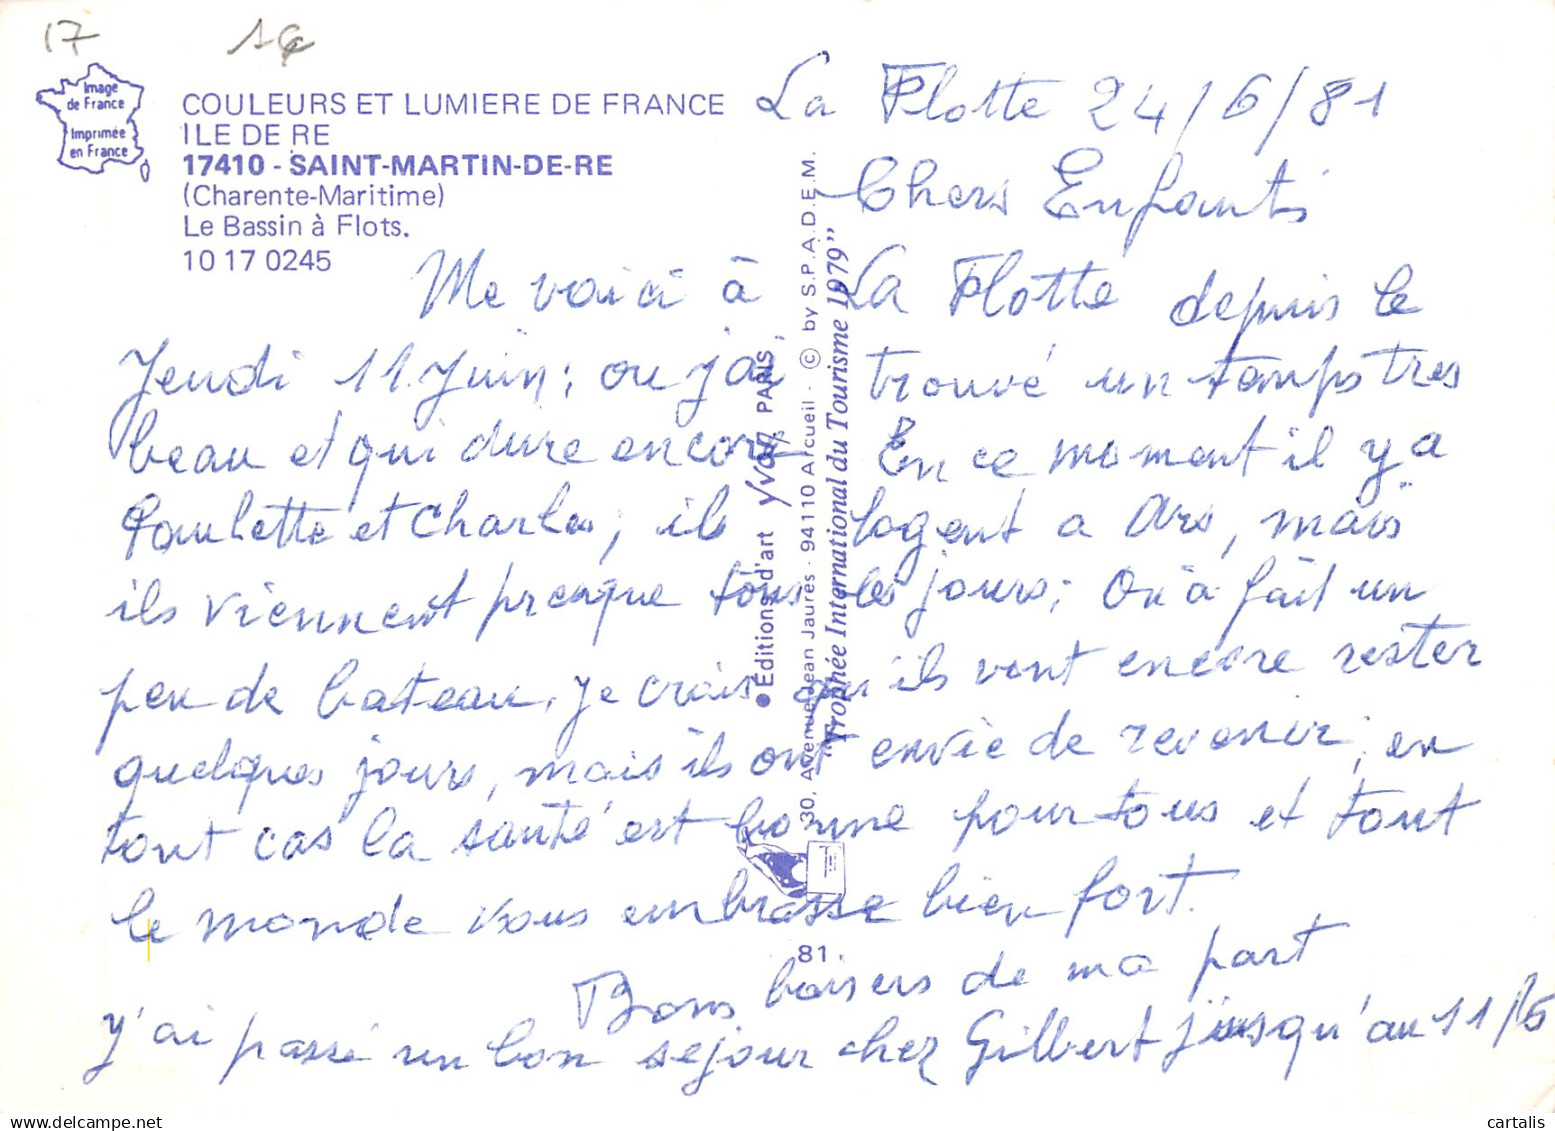 17
1€
Image
de France
Imprimée
en France
COULEURS ET LUMIERE DE FRANCE
ILE DE RE
17410 - SAINT-MARTIN-DE-RE
(Charente-Maritime)
Le Bassin à Flots.
10 17 0245
La Flotte 24/6/81
Chers Enfants
Me voici à La Flotte depuis le
Jeudi 11 Juin; ou j'ai trouvé un temps tres
beau et qui dure encore En ce moment il y a
Paulette et Charles, ils logent a Ars, mais
ils viennent presque tous les jours; On a fait un
peu de bateau. Je crois qu'ils vont encore rester
quelques jours, mais ils ont envie de revenir; en
tout cas la santé est bonne pour tous et tout
le monde vous embrasse bien fort.
Bons baisers de ma part
J'ai passé un bon sejour chez Gilbert jusqu'au 11/6
● Editions d'art Yvon PARIS,
30, Avenue Jean Jaurès - 94110 Arcueil - © by S.P.A.D.E.M.
"Trophée International du Tourisme 1979"
81
cartalis